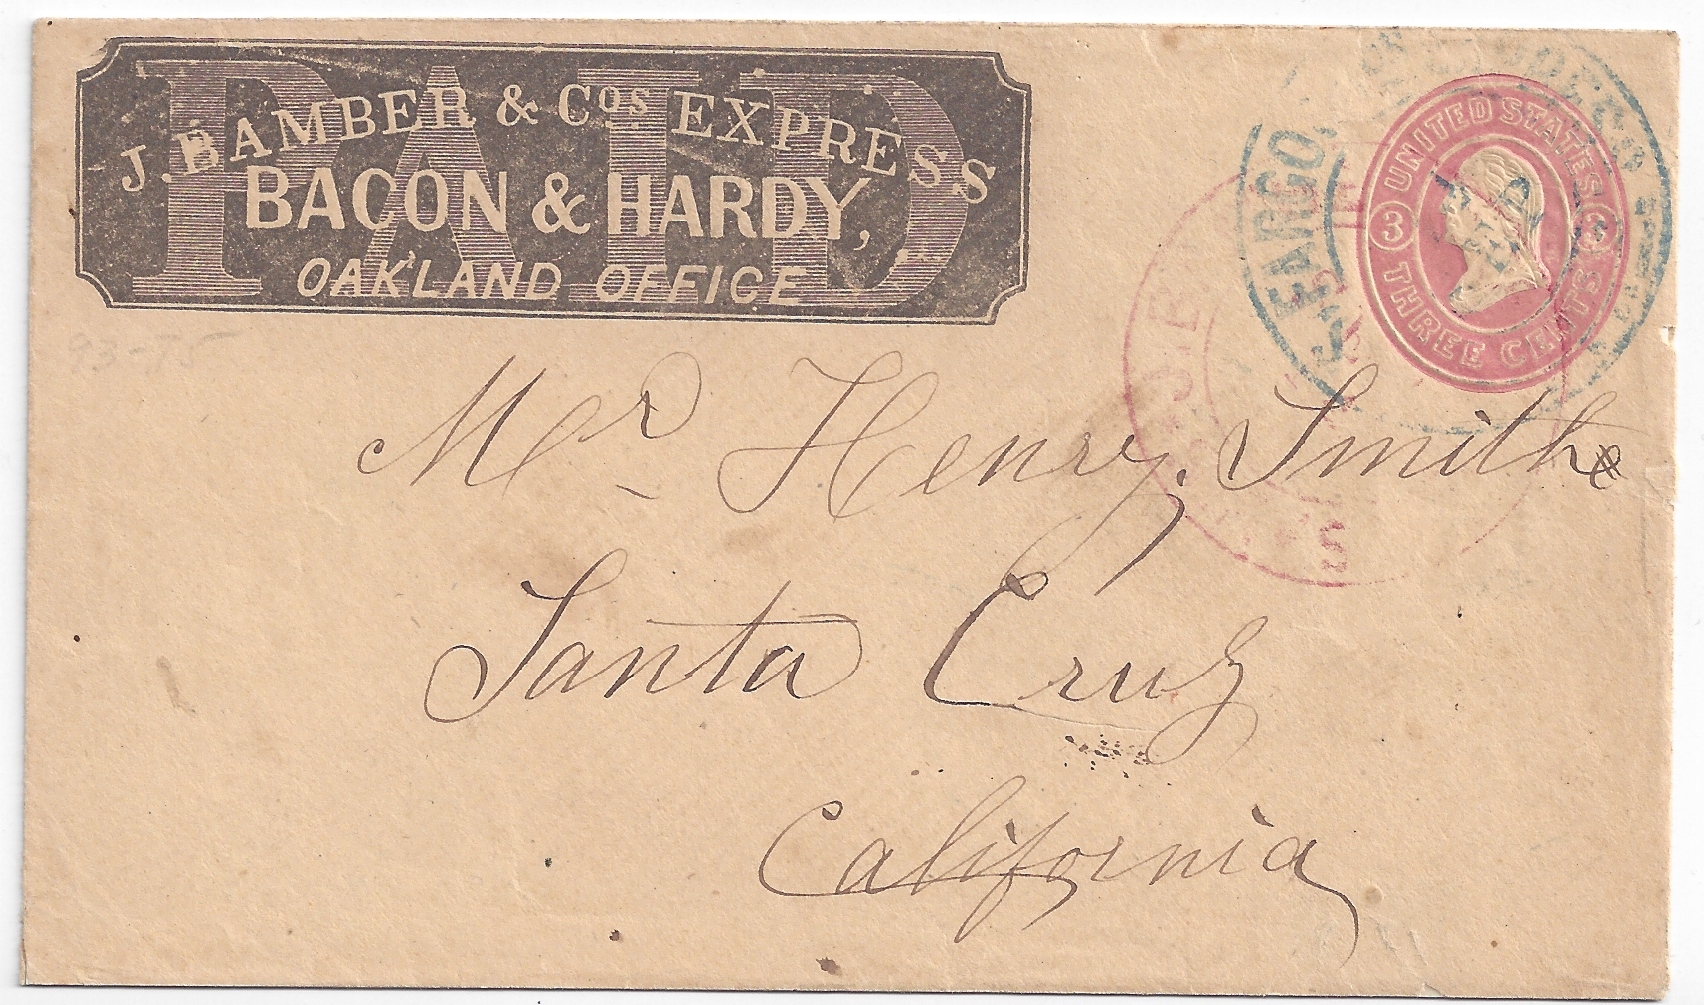 PAID
J. BAMBER & COS EXPRESS
BACON & HARDY,
OAKLAND OFFICE
UNITED STATES
3 3
THREE CENTS
FARGO
93-75
Mr Henry. Smith
Santa Cruz
California